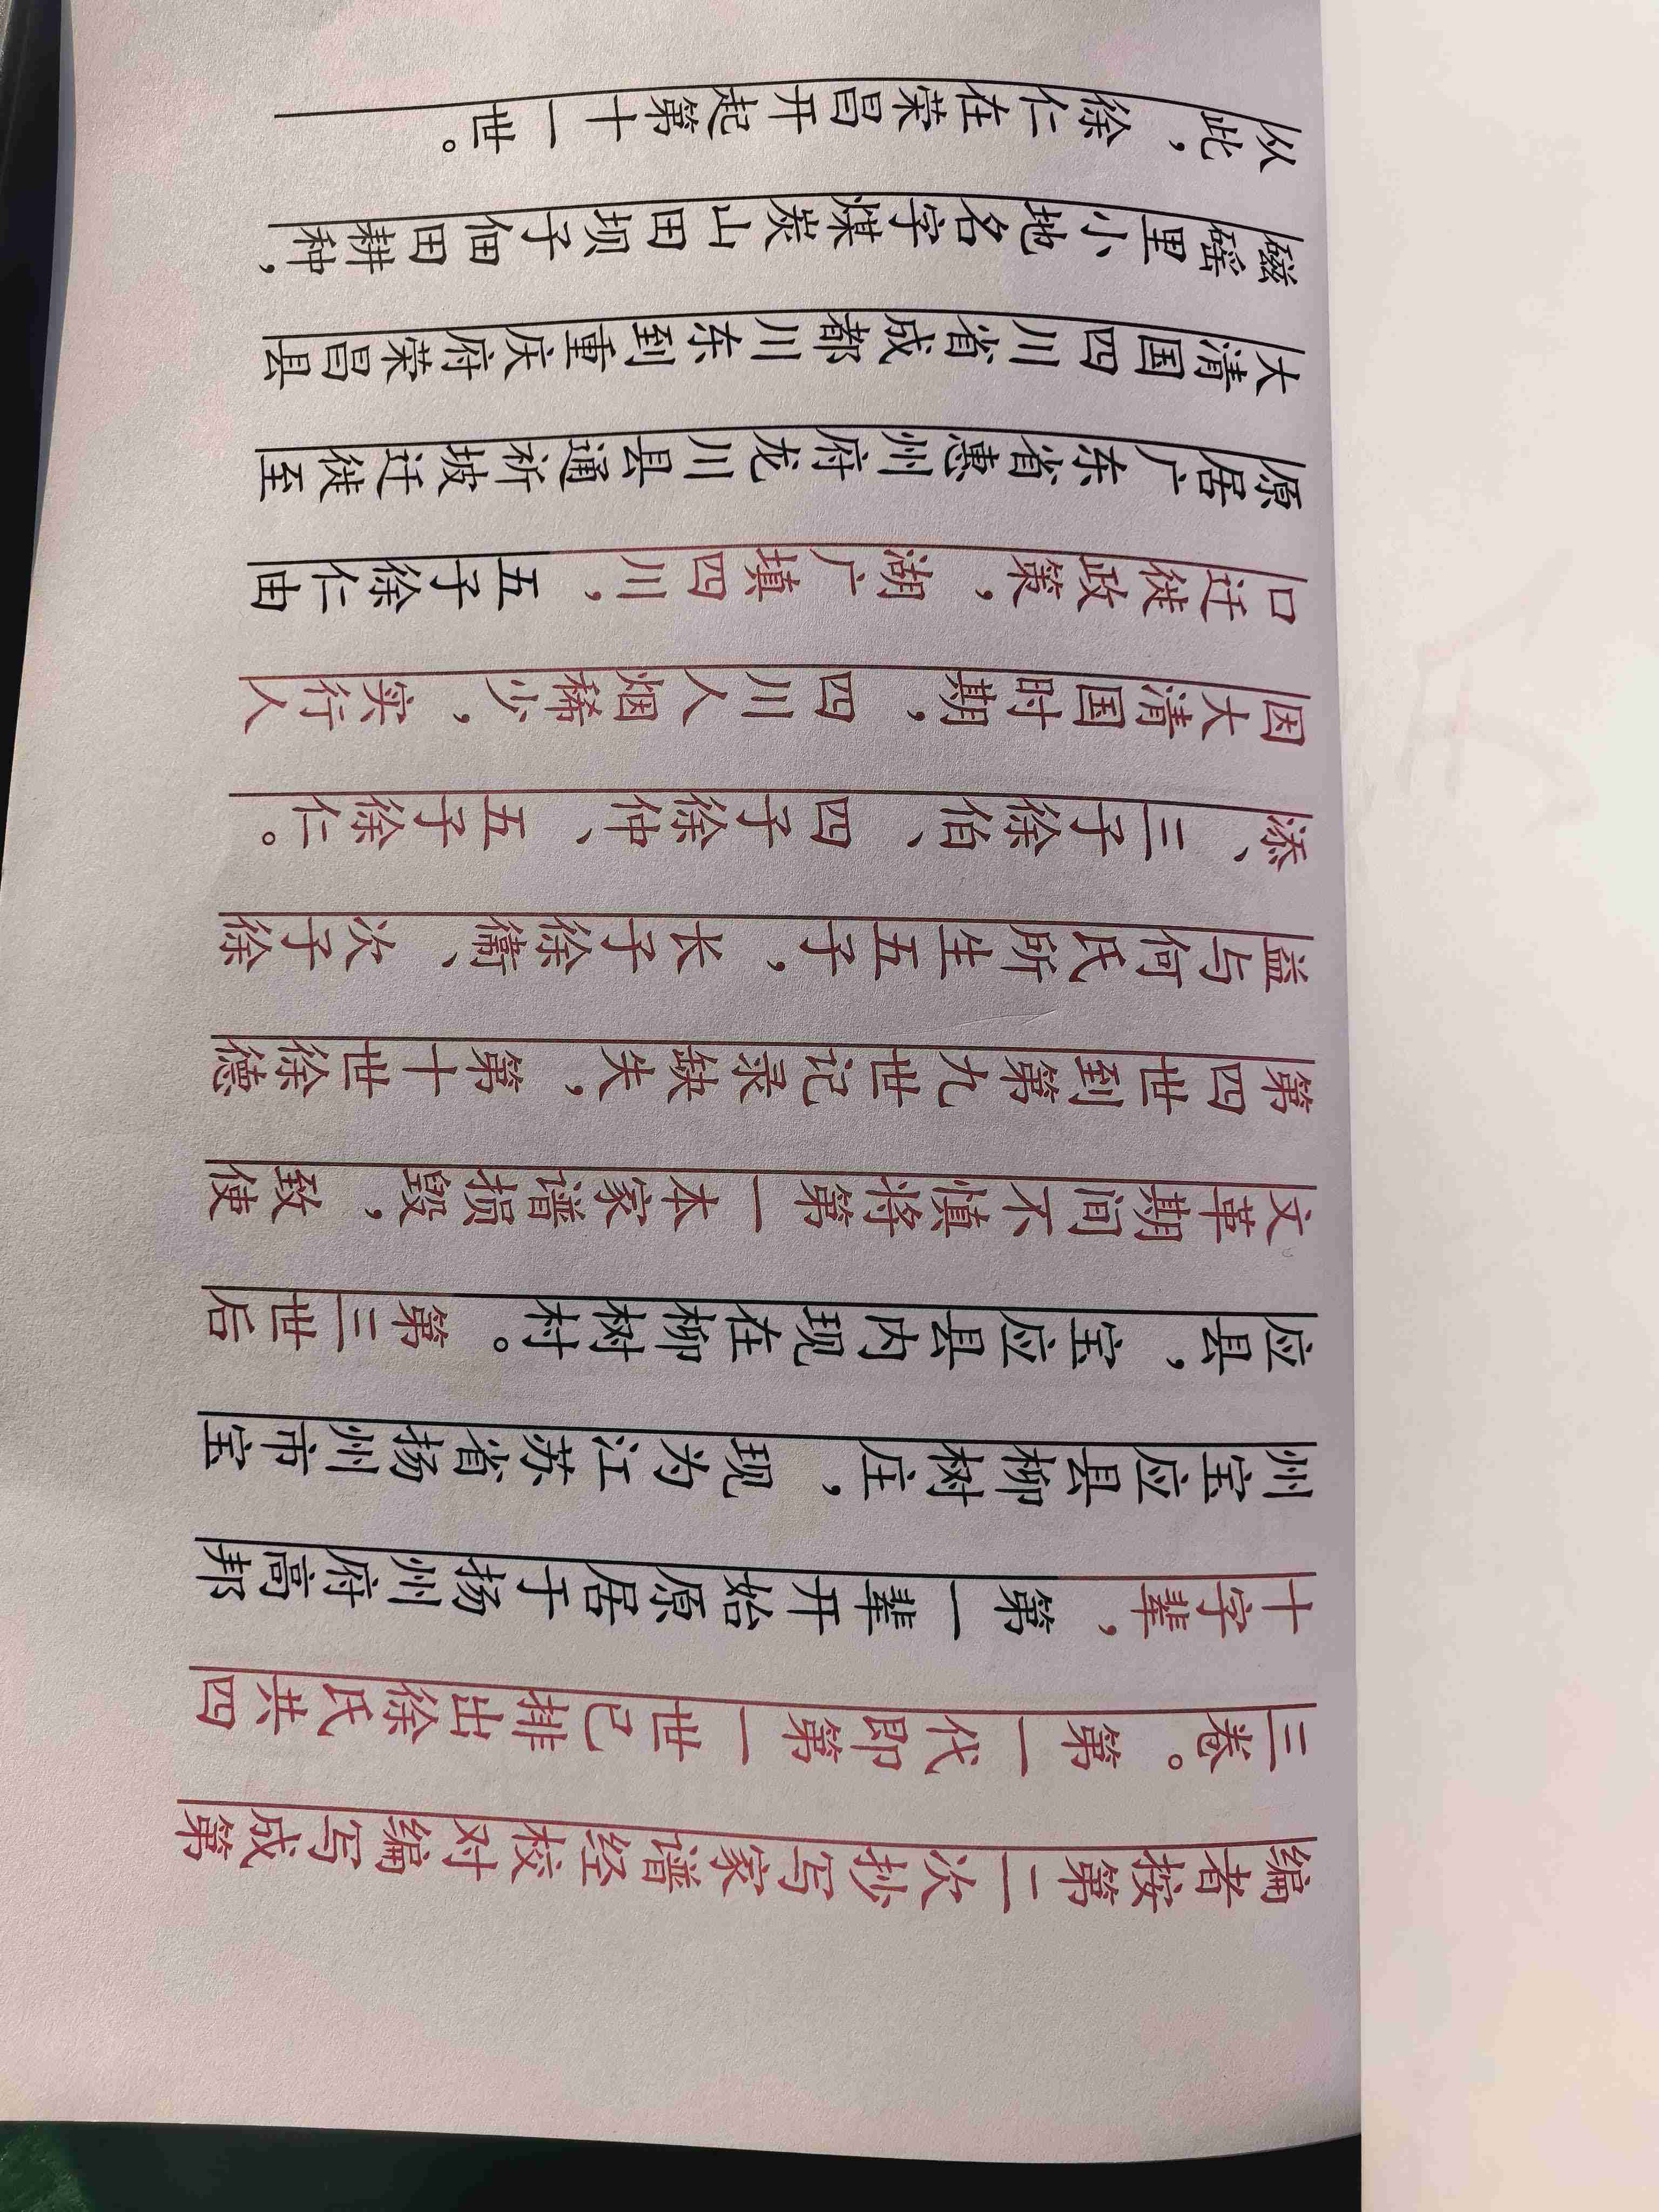 编者按第二次抄写家谱经校对编写成第
三卷。第一代即第一世已排出徐氏共四
十字辈，第一辈开始原居于扬州府高邦
州宝应县柳树庄，现为江苏省扬州市宝
应县，宝应县内现在柳树村。第三世后
文革期间不慎将第一本家谱损毁，致使
第四世到第九世记录缺失，第十世徐德
益与何氏所生五子，长子徐衞、次子徐
添、三子徐伯、四子徐仲、五子徐仁。
因大清国时期，四川人烟稀少，实行人
口迁徙政策，湖广填四川，五子徐仁由
原居广东省惠州府龙川县通祈坡迁徙至
大清国四川省成都川东到重庆府荣昌县
磁磘里小地名字煤炭山田坝子佃田耕种，
从此，徐仁在荣昌开起第十一世。